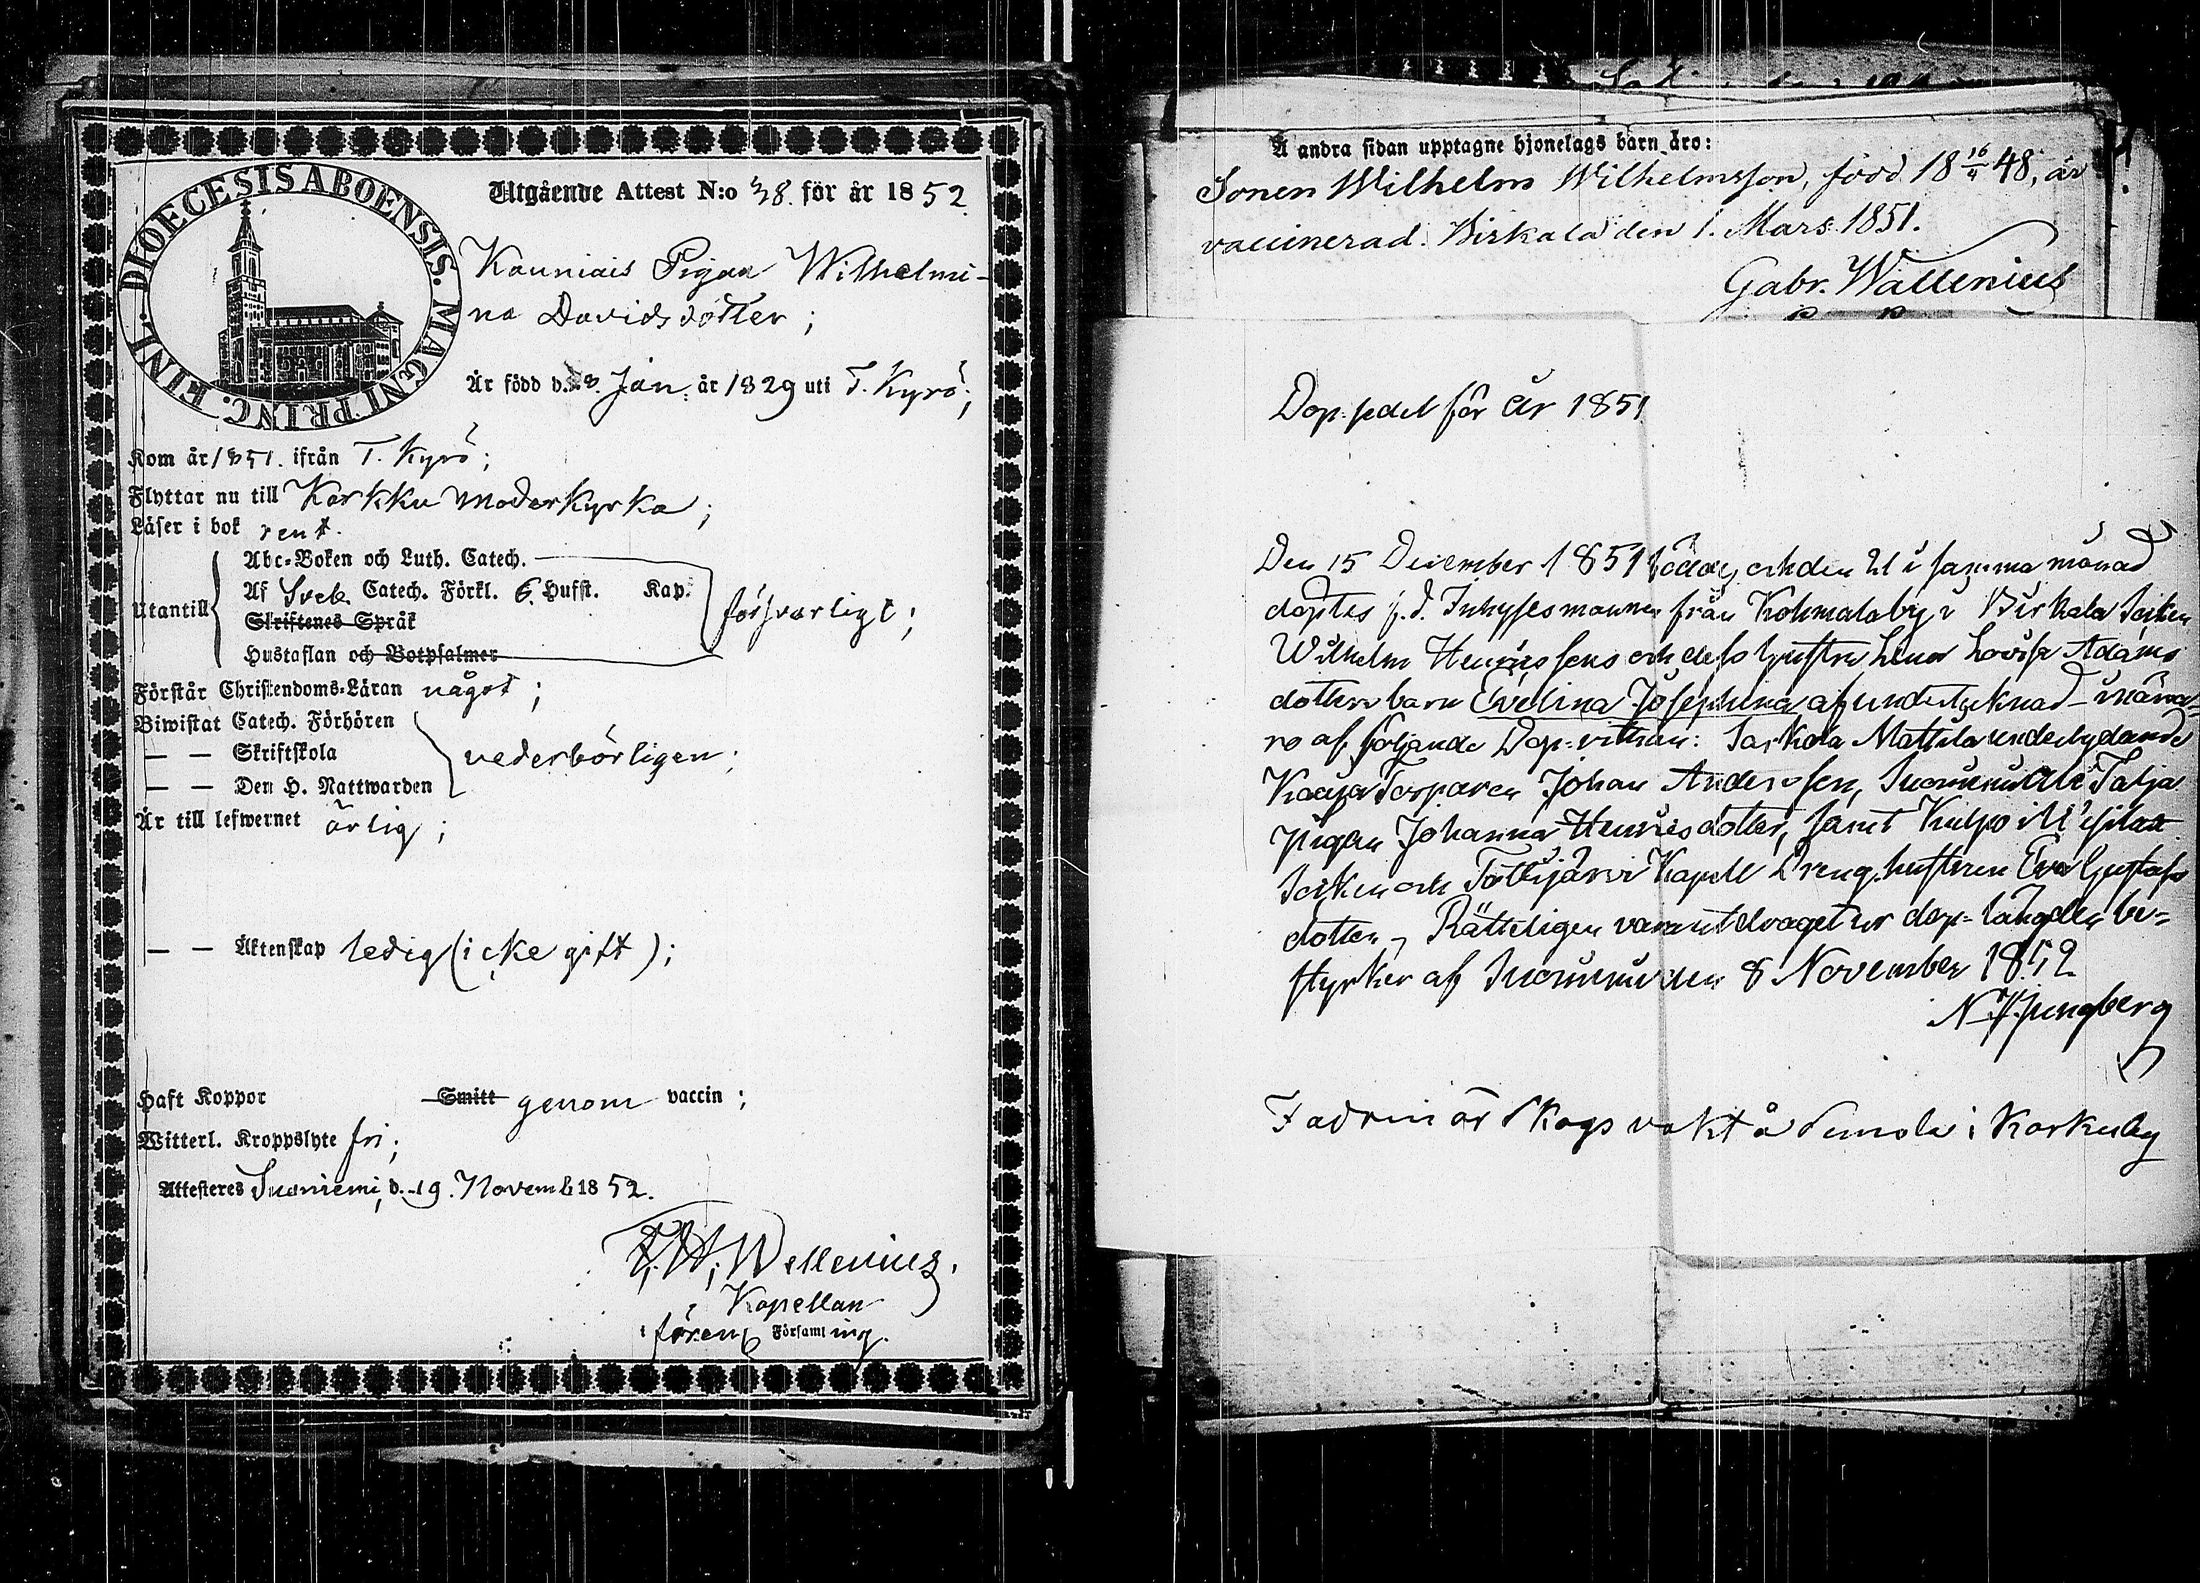 DIOECESIS ABOENSIS. MAGNI PRINC. FINL.
Utgående Attest N:o 38. för år 1852.
Kauniais Pigan Wilhelmi-
na Davidsdotter;
Är född d. 8. Jan. år 1829 uti T. Kyrö;
Kom år 1851. ifrån T. Kyrö;
Flyttar nu till Karkku moderkyrka;
Läser i bok rent.
Utantill
Abc-Boken och Luth. Catech.
Af Sveb. Catech. Förkl. 6. Hufst. Kap.
Skriftenes Språk
Hustaflan och Botpsalmer
försvarligt;
Förstår Christendoms-Läran något;
Biwistat Catech. Förhören
— — Skriftskola
— — Den H. Nattwarden
vederbörligen;
Är till lefwernet ärlig;
— — Äktenskap ledig (icke gift);
Haft Koppor Smitt genom vaccin;
Witterl. Kroppslyte fri;
Attesteres Suoniemi, d. 19. Novemb. 1852.
Wallenius.
Kapellan
i förenb. Församling.
Å andra sidan upptagne hjonelags barn äro:
Sonen Wilhelm Wilhelmsson, född 18 16/4 48, är
vaccinerad. Birkala den 1. Mars. 1851.
Gabr. Wallenius
Dop-sedel för år 1851
Den 15 December 1851 föddes och den 21 i samma månad
döptes s. d. Inhysesmannen från Kohmalaby i Birkala Socken
Wilhelm Henricssons och dess hustru Lena Lovisa Adams
dotters barn Evelina Josephina af undertecknad i närva-
ro af följande Dop-vittnen: Saskola Mattila underlydande
Torparen Johan Andersson, Suoniemi Talja
pigan Johanna Henricsdotter, samt Kulpo i
Socken och Tottijärvi Kapell Dreng-hustrun Eva Gustafs
dotter, Rätteligen vara utdraget ur dop-längden be-
styrker af Suoniemi den 8 November 1852
Ljungberg
Fadren är Skogsvakt å i Karkuby